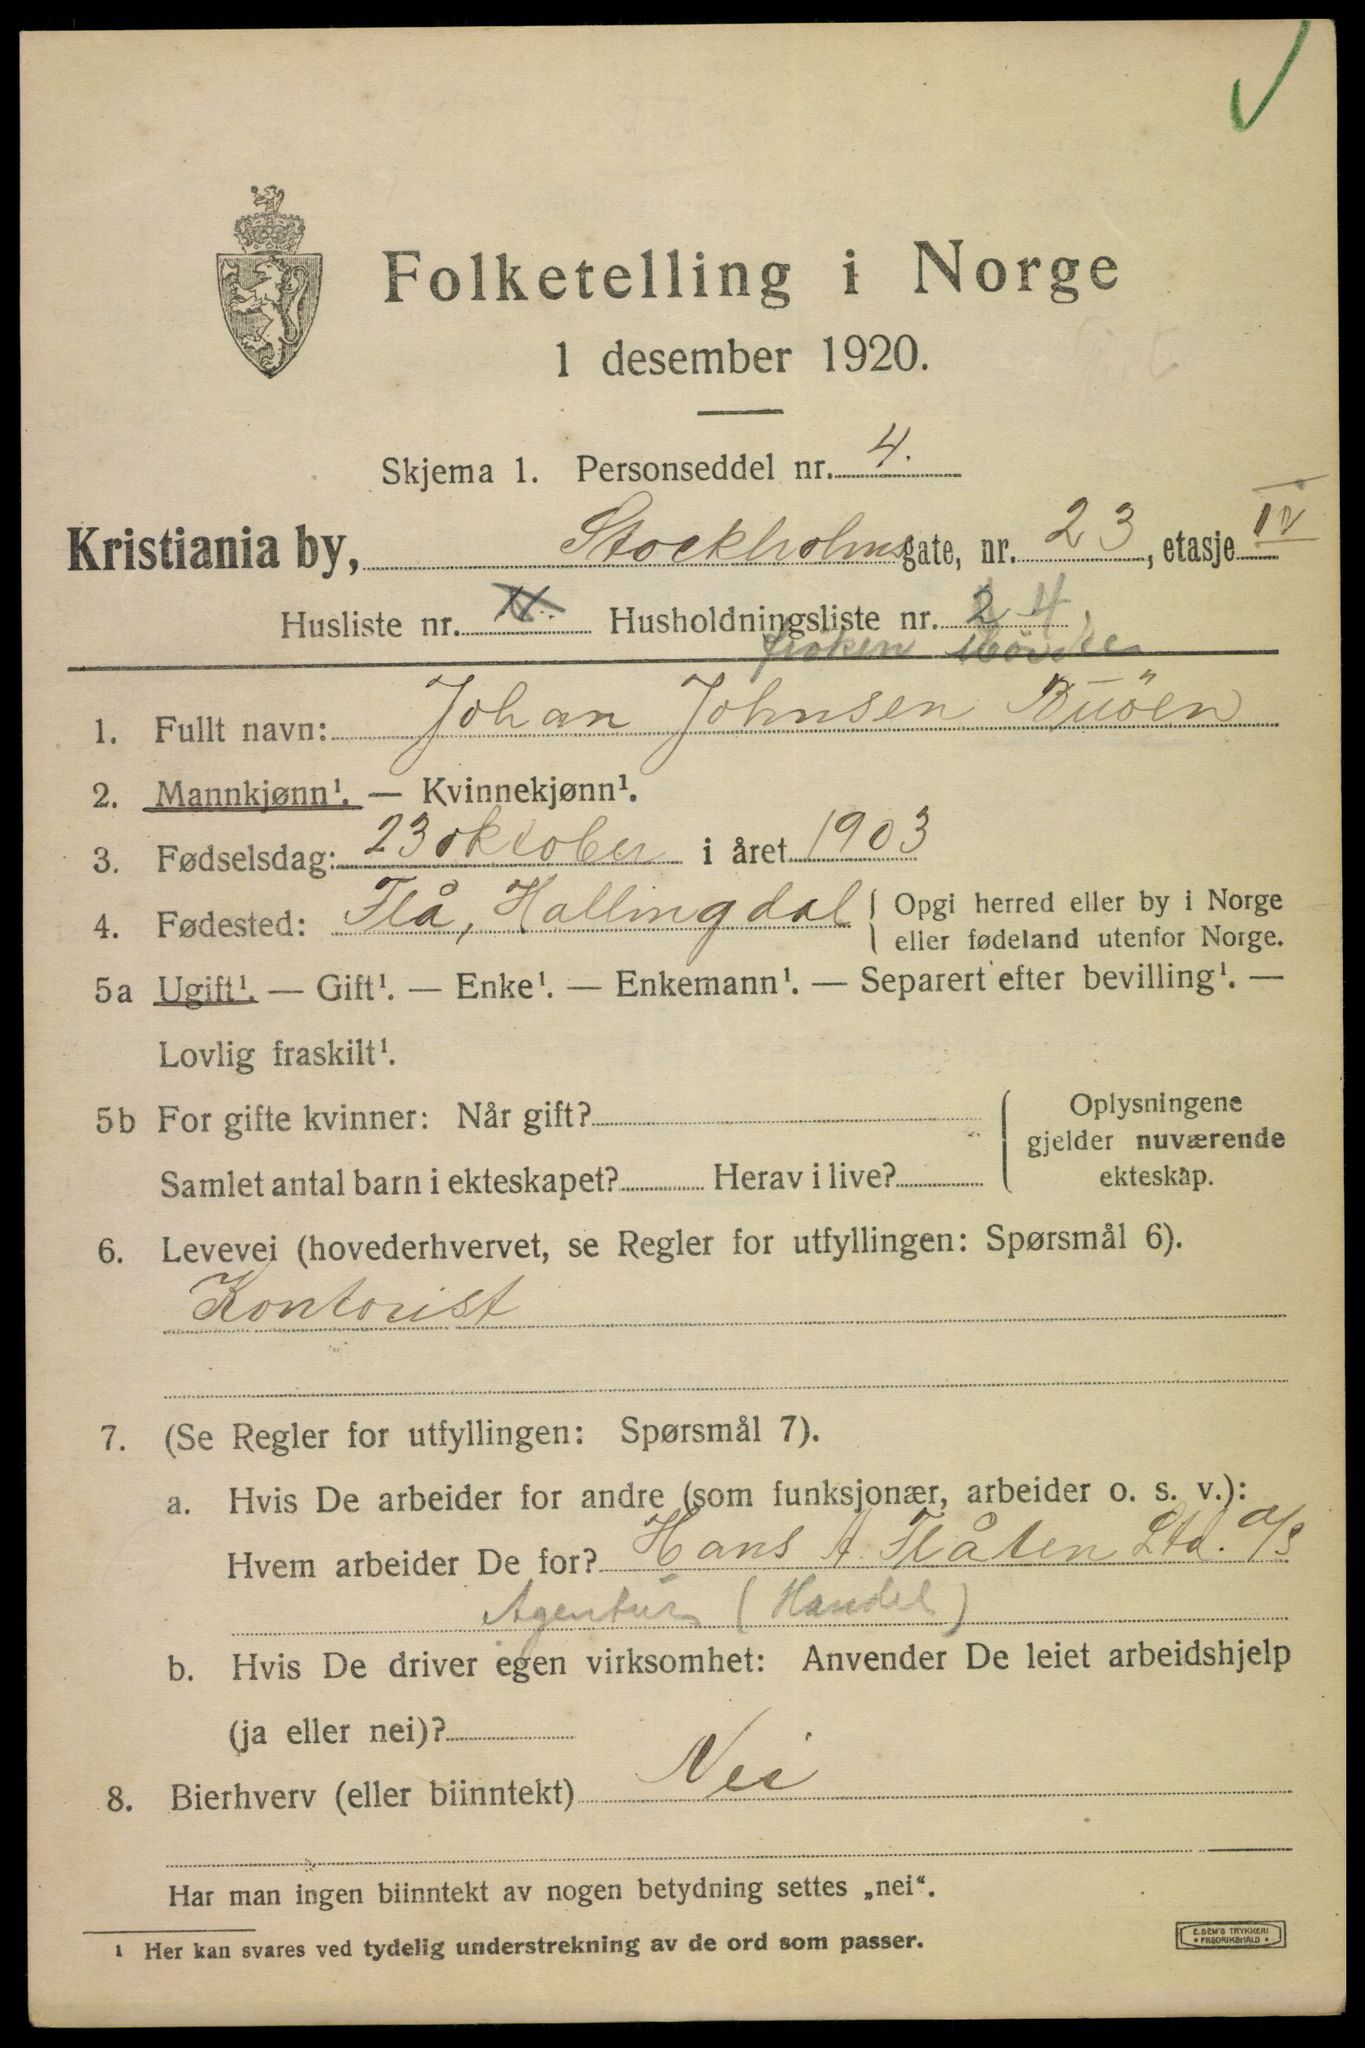 Folketelling i Norge
1 desember 1920.
Skjema 1. Personseddel nr. 4.
Kristiania by, Stockholmsgate, nr. 23, etasje IV
Husliste nr. Husholdningsliste nr. 2 4
frøken
1. Fullt navn: Johan Johnsen Buöen
2. Mannkjønn¹. — Kvinnekjønn¹.
3. Fødselsdag: 23 oktober i året 1903
4. Fødested: Flå, Hallingdal { Opgi herred eller by i Norge
eller fødeland utenfor Norge.
5a Ugift¹. — Gift¹. — Enke¹. — Enkemann¹. — Separert efter bevilling¹. —
Lovlig fraskilt¹.
5b For gifte kvinner: Når gift?
Samlet antal barn i ekteskapet? Herav i live?
Oplysningene
gjelder nuværende
ekteskap.
6. Levevei (hovederhvervet, se Regler for utfyllingen: Spørsmål 6).
Kontorist
7. (Se Regler for utfyllingen: Spørsmål 7).
a. Hvis De arbeider for andre (som funksjonær, arbeider o. s. v.):
Hvem arbeider De for? Hans A. Flåten Ltd. A/S
Agentur (Handel)
b. Hvis De driver egen virksomhet: Anvender De leiet arbeidshjelp
(ja eller nei)?
8. Bierhverv (eller biinntekt) Nei
Har man ingen biinntekt av nogen betydning settes „nei“.
¹ Her kan svares ved tydelig understrekning av de ord som passer.
E. SEM'S TRYKKERI
FREDRIKSHALD